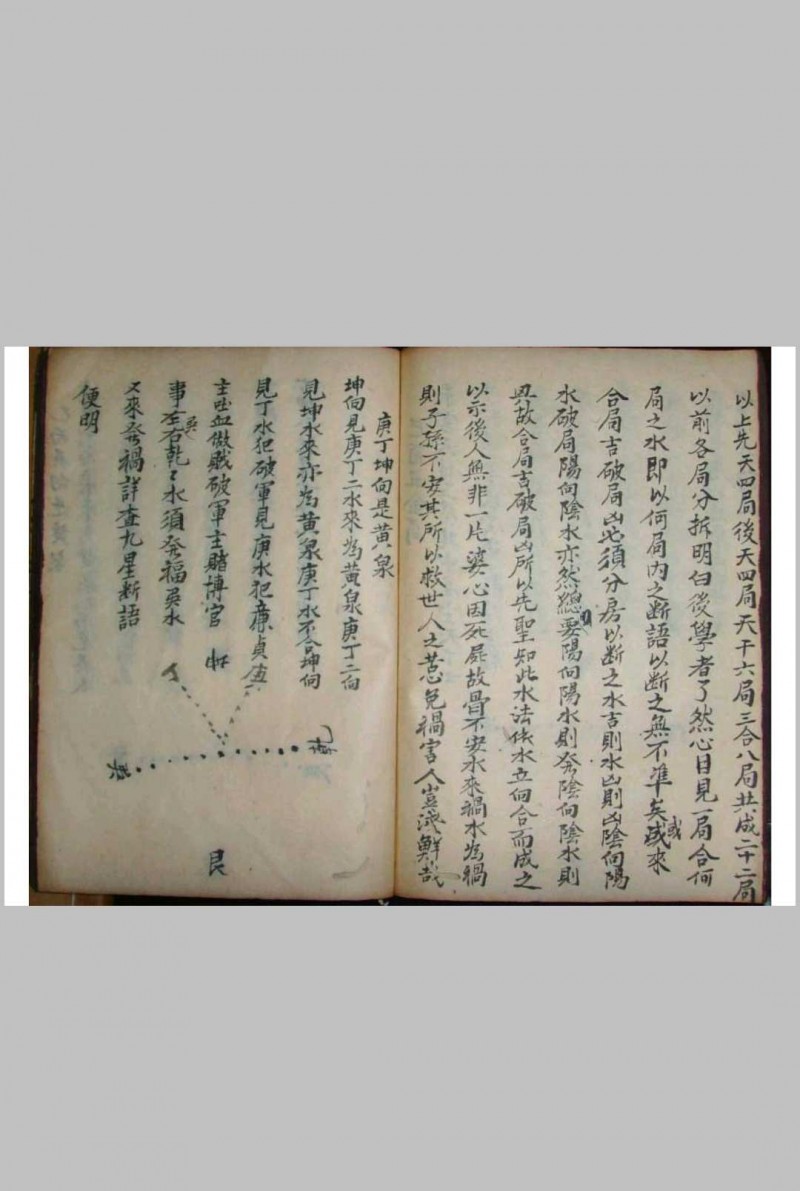 以上先天四局後天四局天干六局三合八局共成二十二局
以前各局分拆明白後學者了然心目見一局合何
局之水即以何局內之断語以断之無不準矣或來
合局吉破局凶必須分房以断之水吉則水凶則凶陰向陽
水破局陽向陰水亦然總要陽向陽水則發陰向陰水則
興故合局吉破局凶所以先聖知此水法依水立向合而成之
以示後人無非一片婆心因死屍故骨不安水來禍水為禍
則子孫不安其所以救世人之苦心免禍害人豈淺鮮哉
庚丁坤向是黄泉
坤向見庚丁二水來為黄泉庚丁二向
見坤水來亦為黄泉庚丁水不合坤向
見丁水犯破軍見庚水犯廉貞
主吐血做賊破軍主賭博官
事左右乾水須發福巽水
又來發禍詳查九星断語
便明
艮